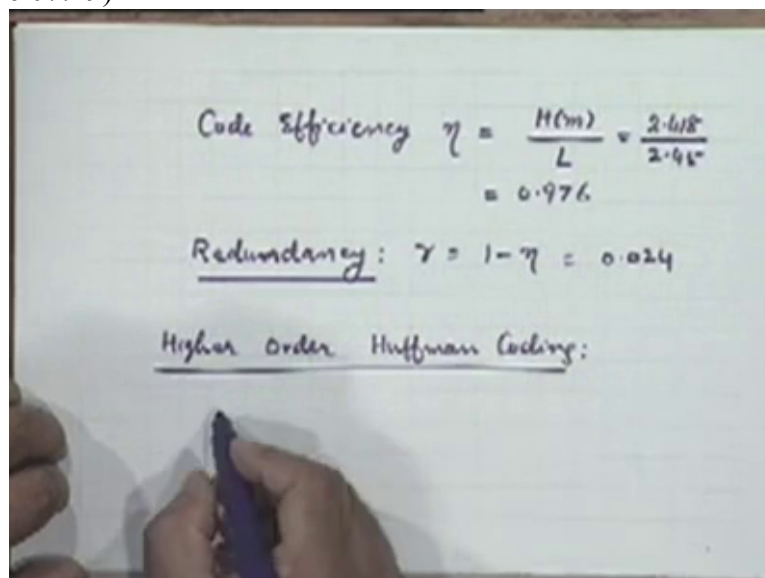 Code Efficiency η = H(m)/L = 2.418/2.45
= 0.976
Redundancy: γ = 1-η = 0.024
Higher order Huffman Coding: